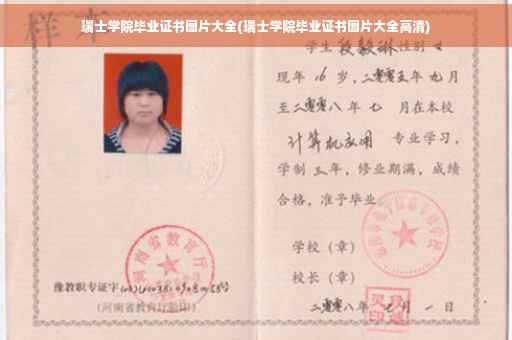 瑞士学院毕业证书图片大全(瑞士学院毕业证书图片大全高清)
样本
学生段毅琳性别女
现年16岁，二零零五年九月
至二零零八年七月在本校
计算机应用 专业学习，
学制三年，修业期满，成绩
合格，准予毕业
学校（章）
校长（章）
二零零八年七月一日
河南省教育厅
豫教职专证字
(河南省教育厅验印)